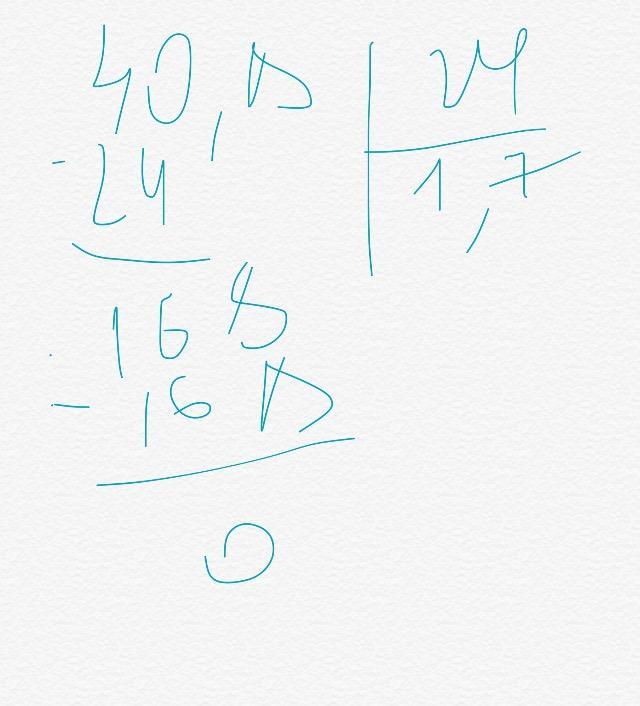 40,8 | 24
- 24 | 1,7
168
- 168
0